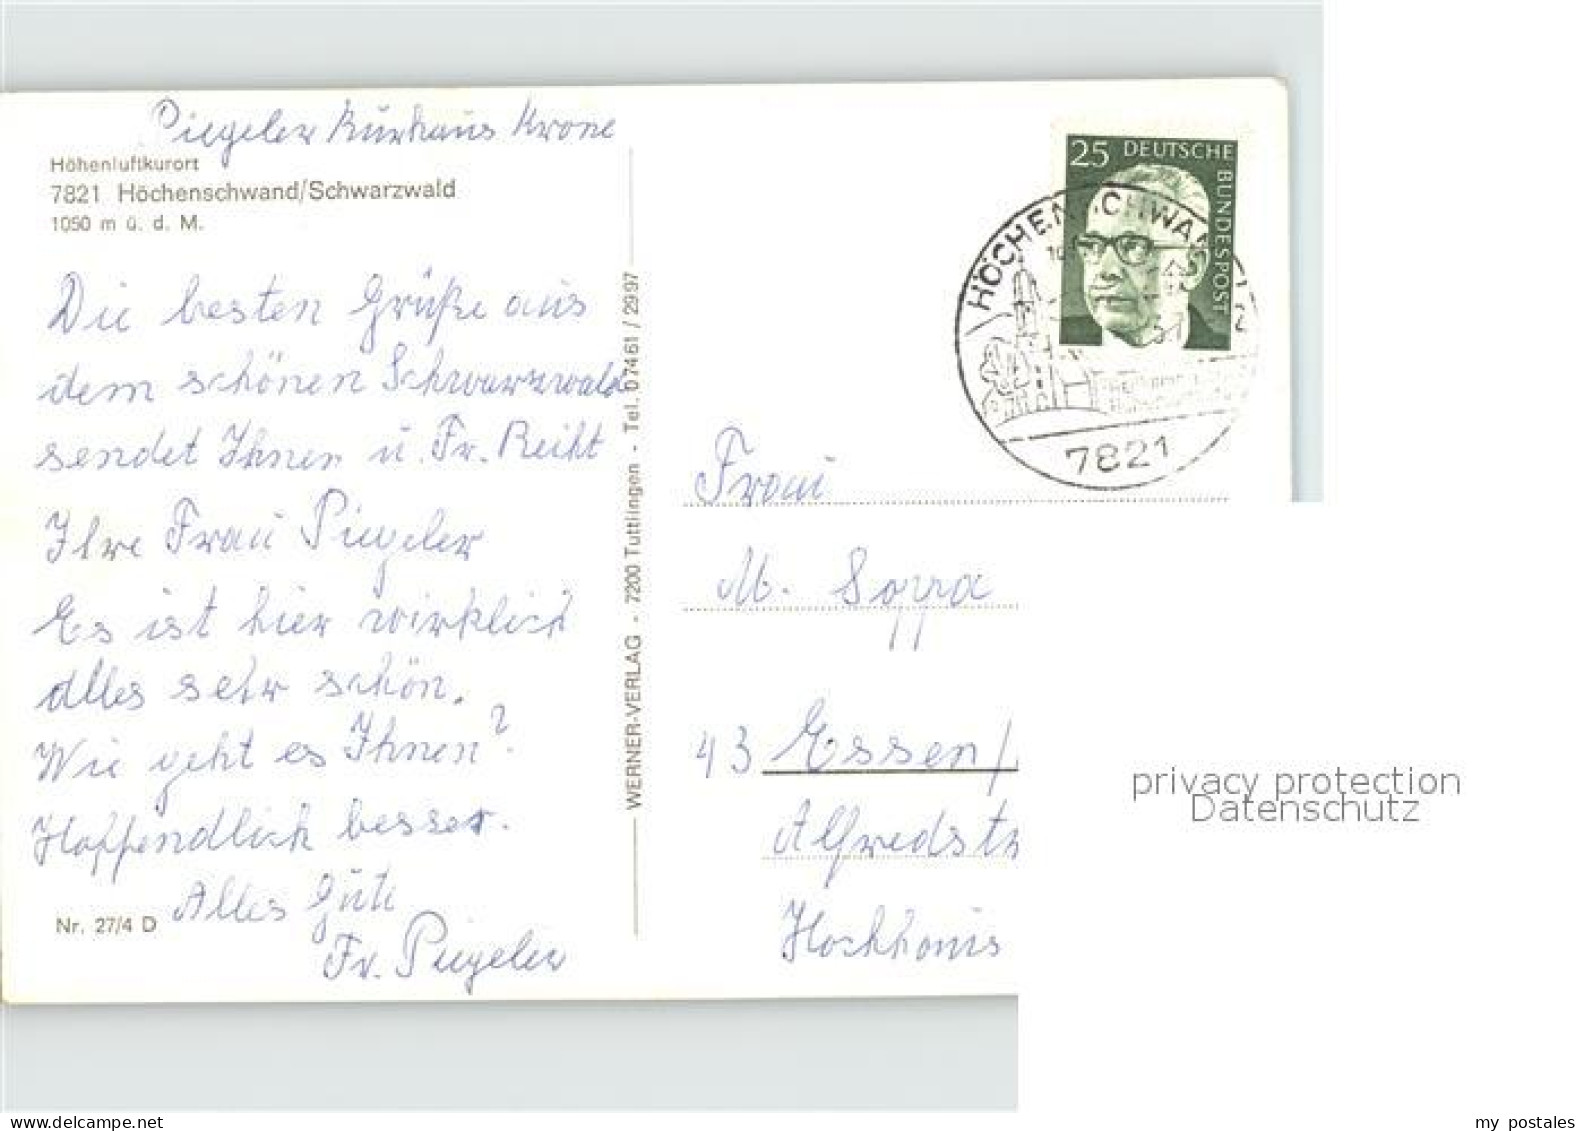 Piegeler Kurhaus Krone
Höhenluftkurort
7821 Höchenschwand/Schwarzwald
1050 m ü. d. M.
Die besten Grüße aus
dem schönen Schwarzwald
sendet Ihnen u. Fr. Reiht
Ihre Frau Piegeler
Es ist hier wirklich
alles sehr schön.
Wie geht es Ihnen?
Hoffendlich besser.
Alles Gute
Fr. Piegeler
Nr. 27/4 D
WERNER-VERLAG · 7200 Tuttlingen · Tel. 07461 / 2997
25 DEUTSCHE
BUNDESPOST
7821
Frau
M. Soppa
43 Essen/
Alfredstr
Hochhaus
privacy protection
Datenschutz
my postales